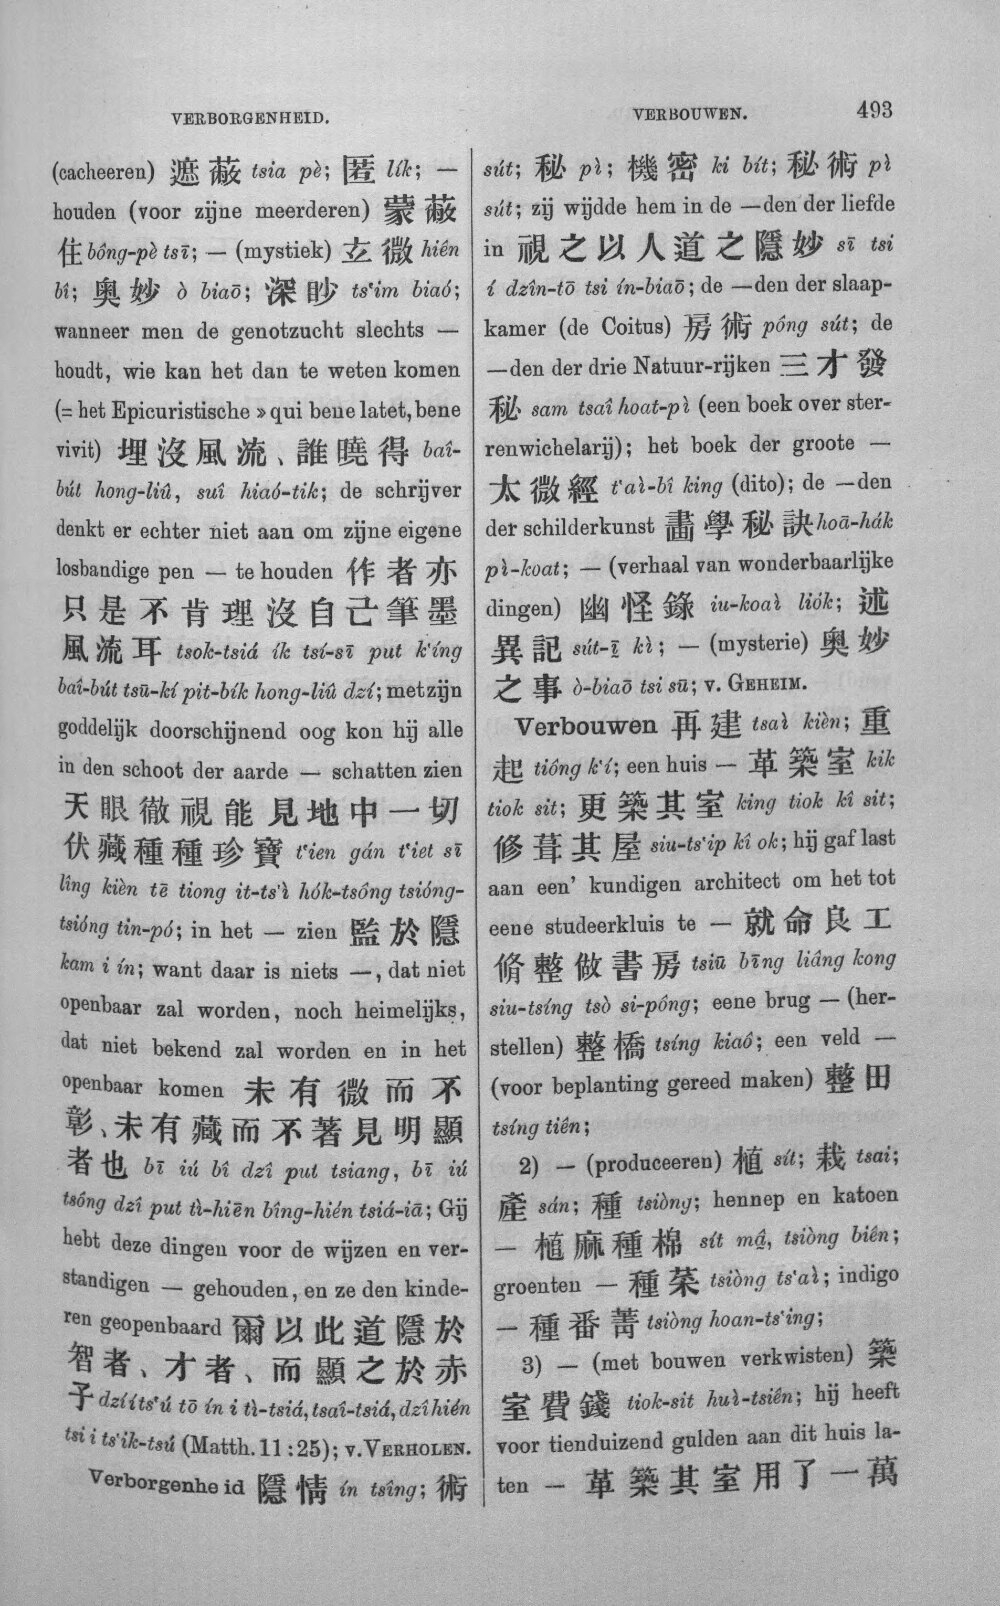 VERBORGENHEID.
(cacheeren) 遮蔽 tsia pè; 匿 lík; —
houden (voor zijne meerderen) 蒙蔽
住 bông-pè tsī; — (mystiek) 玄微 hiên
bî; 奧妙 ò biaō; 深眇 ts‘im biaó;
wanneer men de genotzucht slechts —
houdt, wie kan het dan te weten komen
(= het Epicuristische » qui bene latet, bene
vivit) 埋沒風流、誰曉得 baî-
bút hong-liû, suî hiaó-tik; de schrijver
denkt er echter niet aan om zijne eigene
losbandige pen — te houden 作者亦
只是不肯理沒自己筆墨
風流耳 tsok-tsiá ík tsí-sī put k‘íng
baî-bút tsū-kí pit-bík hong-liû dzí; met zijn
goddelijk doorschijnend oog kon hij alle
in den schoot der aarde — schatten zien
天眼徹視能見地中一切
伏藏種種珍寶 t‘ien gán t‘iet sī
lîng kièn tē tiong it-ts‘ì hók-tsông tsióng-
tsióng tin-pó; in het — zien 監於隱
kam i ín; want daar is niets —, dat niet
openbaar zal worden, noch heimelijks,
dat niet bekend zal worden en in het
openbaar komen 未有微而不
彰、未有藏而不著見明顯
者也 bī iú bî dzî put tsiang, bī iú
tsông dzî put tì-hiēn bîng-hién tsiá-iā; Gij
hebt deze dingen voor de wijzen en ver-
standigen — gehouden, en ze den kinde-
ren geopenbaard 爾以此道隱於
智者、才者、而顯之於赤
子 dzí íts‘ú tō ín i tì-tsiá, tsaî-tsiá, dzî hién
tsi i ts‘ik-tsú (Matth. 11 : 25); v. VERHOLEN.
Verborgenheid 隱情 ín tsîng; 術
VERBOUWEN. 493
sút; 秘 pì; 機密 ki bít; 秘術 pì
sút; zij wijdde hem in de —den der liefde
in 視之以人道之隱妙 sī tsi
í dzîn-tō tsi ín-biaō; de —den der slaap-
kamer (de Coitus) 房術 pông sút; de
—den der drie Natuur-rijken 三才發
秘 sam tsaî hoat-pì (een boek over ster-
renwichelarij); het boek der groote —
太微經 t‘aì-bî king (dito); de —den
der schilderkunst 畵學秘訣 hoā-hák
pì-koat; — (verhaal van wonderbaarlijke
dingen) 幽怪錄 iu-koaì liók; 述
異記 sút-ī kì; — (mysterie) 奧妙
之事 ò-biaō tsi sū; v. GEHEIM.
Verbouwen 再建 tsaì kièn; 重
起 tiông k‘í; een huis — 革築室 kik
tiok sit; 更築其室 king tiok kî sit;
修葺其屋 siu-ts‘ip kî ok; hij gaf last
aan een’ kundigen architect om het tot
eene studeerkluis te — 就命良工
脩整做書房 tsiū bīng liâng kong
siu-tsíng tsò si-pông; eene brug — (her-
stellen) 整橋 tsíng kiaô; een veld —
(voor beplanting gereed maken) 整田
tsíng tiên;
2) — (produceeren) 植 sít; 栽 tsai;
產 sán; 種 tsiòng; hennep en katoen
— 植麻種棉 sít mâ, tsiòng biên;
groenten — 種菜 tsiòng ts‘aì; indigo
— 種番菁 tsiòng hoan-ts‘ing;
3) — (met bouwen verkwisten) 築
室費錢 tiok-sit huì-tsiên; hij heeft
voor tienduizend gulden aan dit huis la-
ten — 革築其室用了一萬